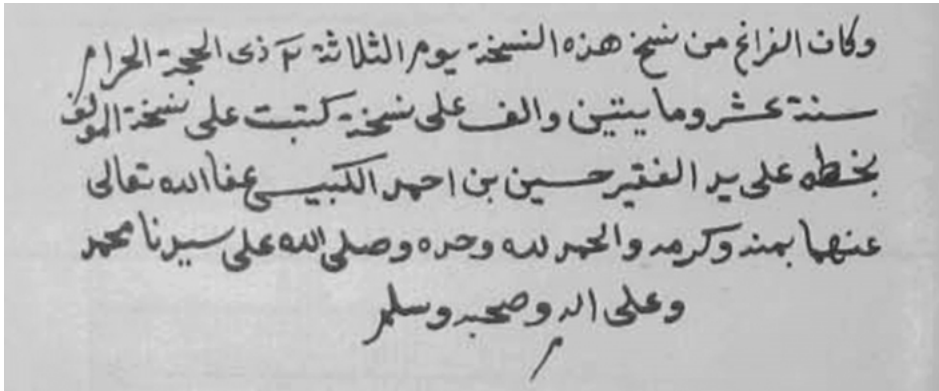 وكان الفراغ من نسخ هذه النسخة يوم الثلاثة ٣ ذى الحجة الحرام
سنة عشر ومايتين والف على نسخة كتبت على نسخة المولف
بخطه على يد الفقير حسين بن احمد الكبيسى عفا الله تعالى
عنهما بمنه وكرمه والحمد لله وحده وصلى الله على سيدنا محمد
وعلى اله وصحبه وسلم